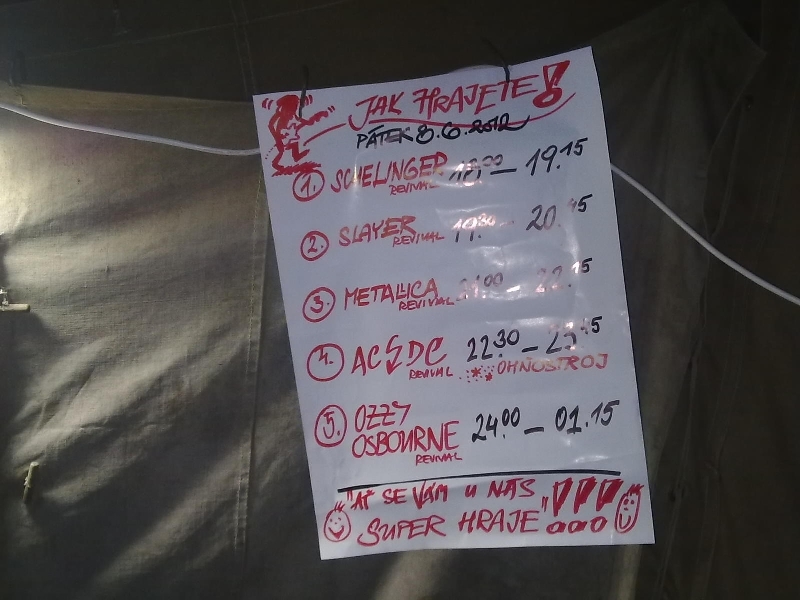 JAK HRAJETE!
PÁTEK 8.6.2012
1. SCHELINGER REVIVAL 18.00 – 19.15
2. SLAYER REVIVAL 19.30 – 20.45
3. METALLICA REVIVAL 21.00 – 22.15
4. AC⚡DC REVIVAL 22.30 – 23.45
OHŇOSTROJ
5. OZZY
OSBOURNE REVIVAL 24.00 – 01.15
"AŤ SE VÁM U NÁS
SUPER HRAJE"!!!